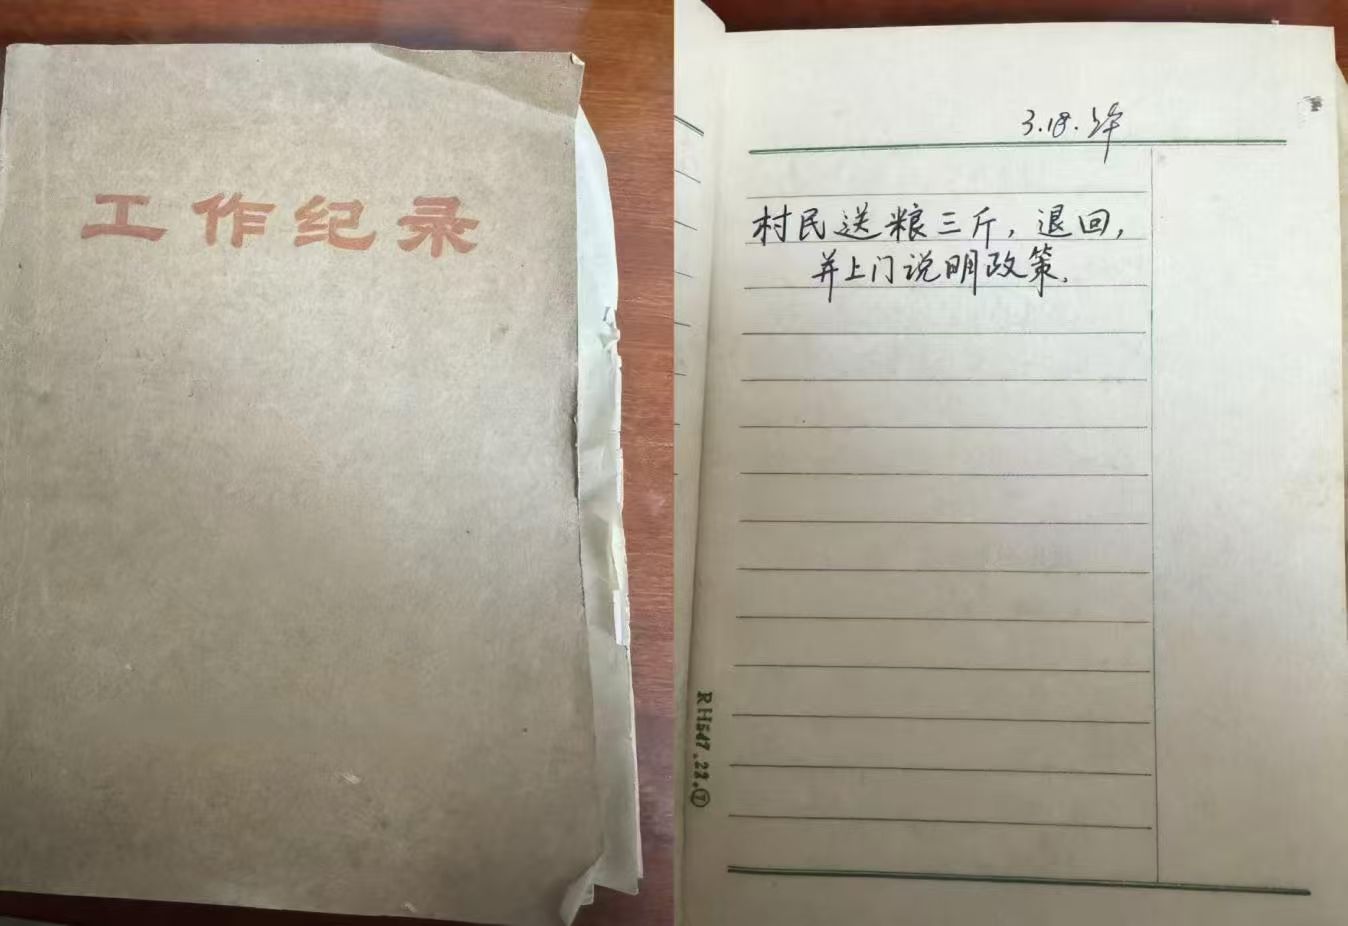 工作纪录
3.18.
村民送粮三斤，退回，
并上门说明政策.
RH547.22.⑦